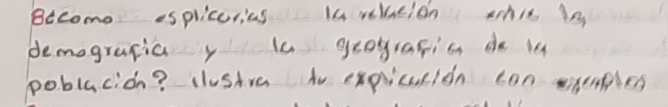 8¿como esplicarias la relación entre la
demografia y la geografia de la
poblacion? ilustra tu explicación con ejemplos